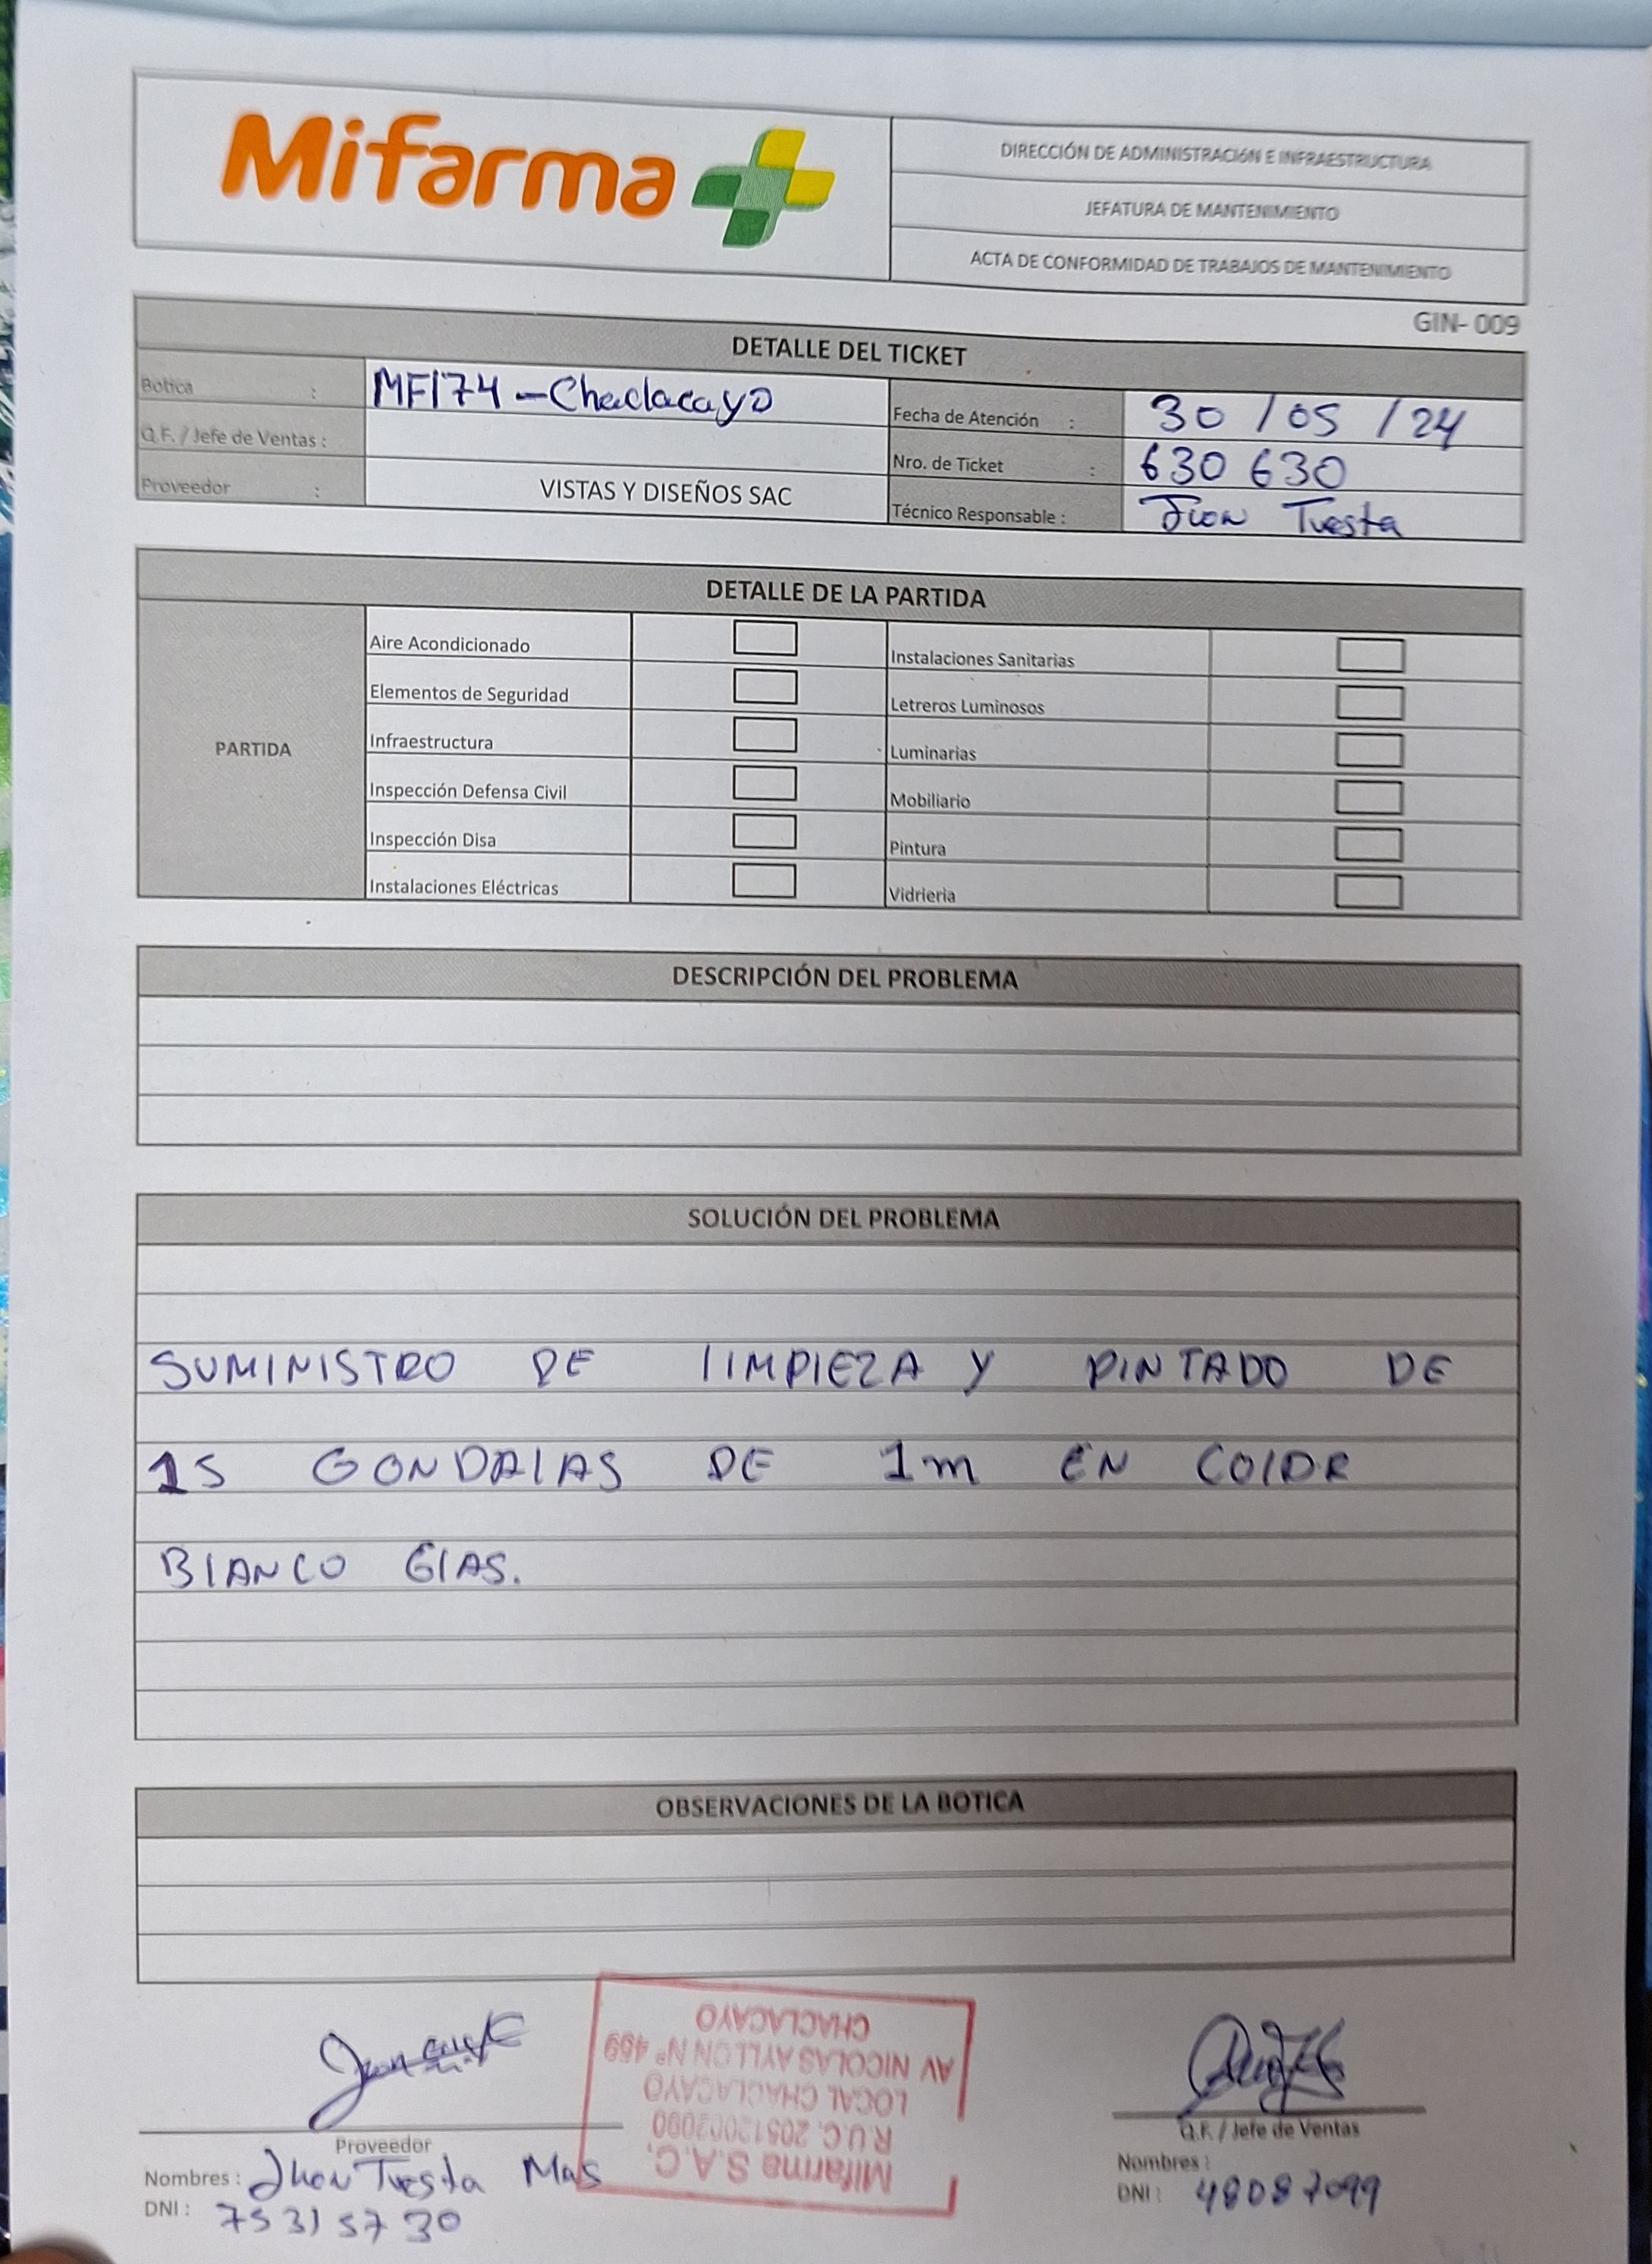 Mifarma
DIRECCIÓN DE ADMINISTRACIÓN E INFRAESTRUCTURA
JEFATURA DE MANTENIMIENTO
ACTA DE CONFORMIDAD DE TRABAJOS DE MANTENIMIENTO
GIN- 009
DETALLE DEL TICKET
Botica : MF174 - Chaclacayo
Fecha de Atención : 30 / 05 / 24
Q.F. / Jefe de Ventas :
Nro. de Ticket : 630 630
Proveedor : VISTAS Y DISEÑOS SAC
Técnico Responsable : Jhon Tuesta
DETALLE DE LA PARTIDA
PARTIDA
Aire Acondicionado
Instalaciones Sanitarias
Elementos de Seguridad
Letreros Luminosos
Infraestructura
Luminarias
Inspección Defensa Civil
Mobiliario
Inspección Disa
Pintura
Instalaciones Eléctricas
Vidrieria
DESCRIPCIÓN DEL PROBLEMA
SOLUCIÓN DEL PROBLEMA
SUMINISTRO DE LIMPIEZA Y PINTADO DE
15 GONDOLAS DE 1m EN COLOR
BLANCO GLAS.
OBSERVACIONES DE LA BOTICA
Mifarma S.A.C.
R.U.C. 20512002090
LOCAL CHACLACAYO
AV NICOLAS AYLLON Nº 469
CHACLACAYO
Proveedor
Nombres : Jhon Tuesta Mas
DNI : 75315730
Q.F. / Jefe de Ventas
Nombres :
DNI : 48087099